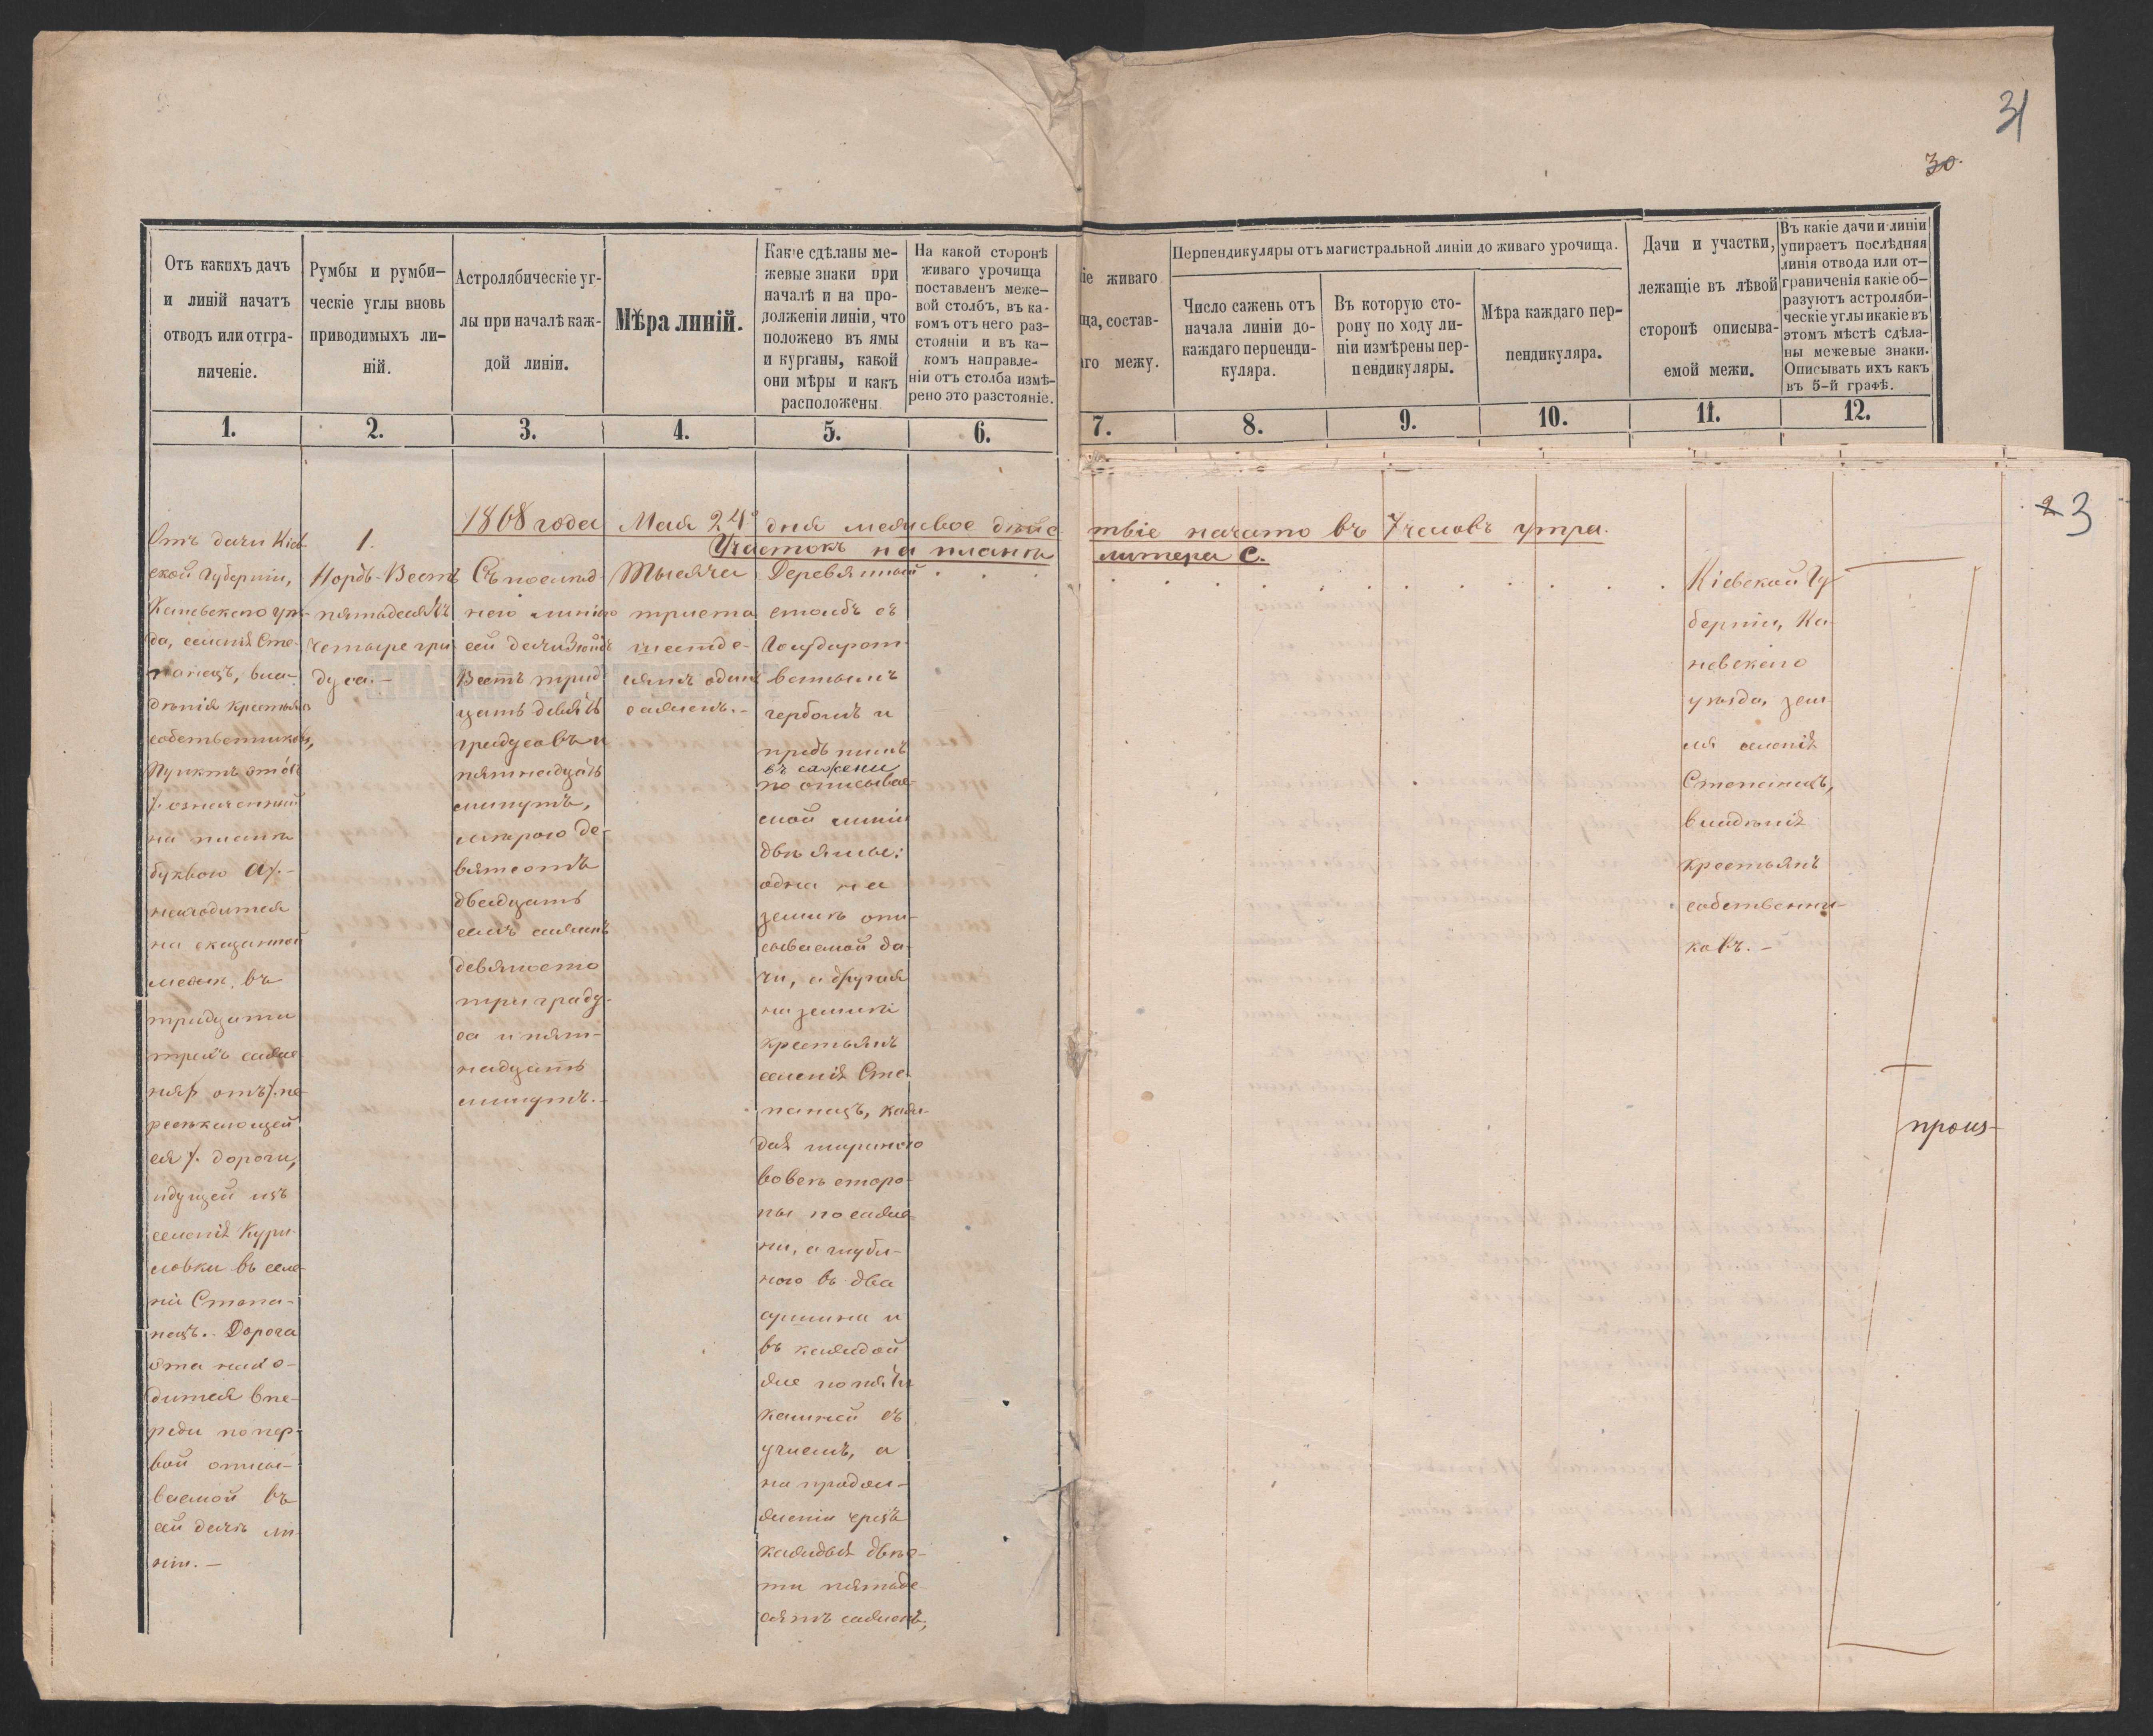 31
30.
Отъ какихъ дачъ
и линій начатъ
отводъ или отгра-
ниченіе.
Румбы и румби-
ческіе углы вновь
приводимыхъ ли-
ній.
Астролябическіе уг-
лы при началѣ каж-
дой линіи.
Мѣра линій.
Какіе сдѣланы ме-
жевые знаки при
началѣ и на про-
долженіи линіи, что
положено въ ямы
и курганы, какой
они мѣры и какъ
расположены.
На какой сторонѣ
живаго урочища
поставленъ меже-
вой столбъ, въ ка-
комъ отъ него раз-
стояніи и въ ка-
комъ направле-
ніи отъ столба измѣ-
рено это разстояніе.
іе живаго
ща, состав-
го межу.
Перпендикуляры отъ магистральной линіи до живаго урочища.
Число сажень отъ
начала линіи до-
каждаго перпенди-
куляра.
Въ которую сто-
рону по ходу ли-
ніи измѣрены пер-
пендикуляры.
Мѣра каждаго пер-
пендикуляра.
Дачи и участки,
лежащіе въ лѣвой
сторонѣ описыва-
емой межи.
Въ какіе дачи и линіи
упираетъ послѣдняя
линія отвода или от-
граниченія какіе об-
разуютъ астроляби-
ческіе углы и какіе въ
этомъ мѣстѣ сдѣла-
ны межевые знаки.
Описывать ихъ какъ
въ 5-й графѣ.
1. 2. 3. 4. 5. 6. 7. 8. 9. 10. 11. 12.
2 3
1868 года Мая 24го дня межевое дѣйс
твіе начато въ 7 часовъ утра.
Участокъ на планѣ
литера С.
Отъ дачи Кіев-
ской Губерніи,
Каневскаго уѣз-
да, селенія Сте-
панецъ, вла-
дѣнія крестьянъ
собственниковъ,
Пунктъ этотъ
/. означенный
на планѣ
буквою А/.-
находится
на сказанной
межѣ, въ
тридцати
трехъ саже
няхъ отъ /.пе-
ресѣкающей
ся/. дороги,
идущей изъ
селенія Кури-
ловки въ селе-
ніе Степа-
нецъ.- Дорога
эта нахо-
дится впе-
реди по пер-
вой описы-
ваемой въ
сей дачѣ ли-
ніи.-
1.
Нордъ-Вестъ
пятьдесятъ
четыре гра
дуса.-
Съ послѣд-
нею линіею
сей дачи Зюйдъ
Вестъ трид
цать девять
градусовъ и
пятнадцать
минутъ,
мѣрою де-
вятьсотъ
двадцать
семь саженъ
девяносто
три граду-
са и пят-
надцать
минутъ.-
Тысяча
триста
шестьде-
сятъ одинъ
сажень.-
Деревянный
столбъ съ
Государст-
веннымъ
гербомъ и
предъ нимъ
въ сажени
по описывае-
мой линіи
двѣ ямы:
одна на
землѣ опи-
сываемой да-
чи, а другая
на землѣ
крестьянъ
селенія Сте-
панецъ, каж-
дая шириною
во всѣ сторо-
ны по саже-
ни, а глуби-
ною въ два
аршина и
въ каждой
яме по пяти
камней съ
углемъ, а
на продол-
женіи чрезъ
каждыя двѣс-
ти пятьде-
сятъ саженъ,
Кіевской Гу-
берніи, Ка-
невскаго
уѣзда, зем
ля селенія
Степанецъ,
владѣнія
крестьянъ
собственни-
ковъ.-
произ-